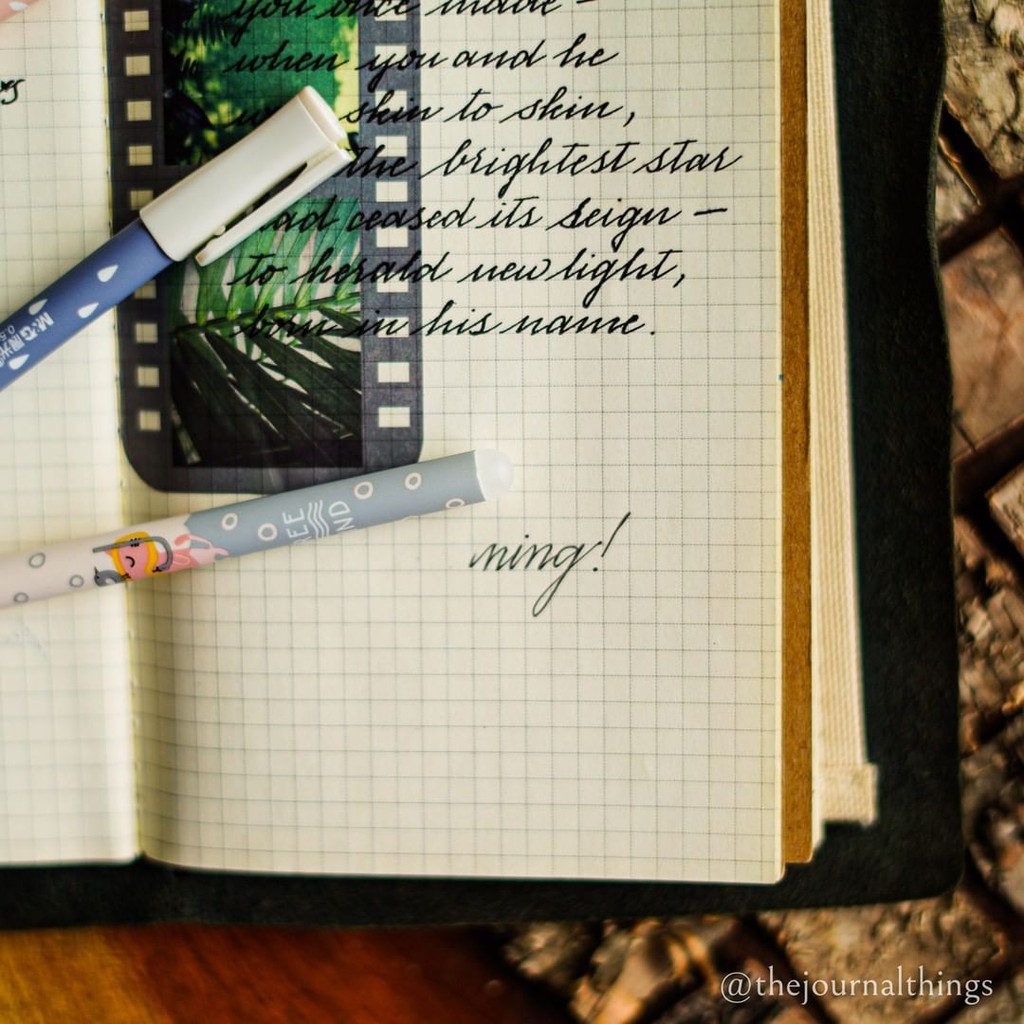 you once made –
when you and he
skin to skin,
the brightest star
had ceased its reign –
to herald new light,
born in his name.
ning!
M&G
0.5
@thejournalthings